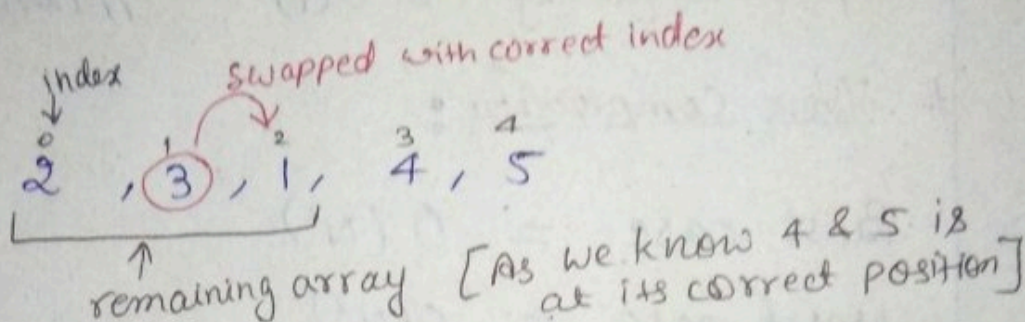 index swapped with correct index
0 1 2 3 4
2 , 3 , 1 , 4 , 5
remaining array [As we know 4 & 5 is
at its correct position]